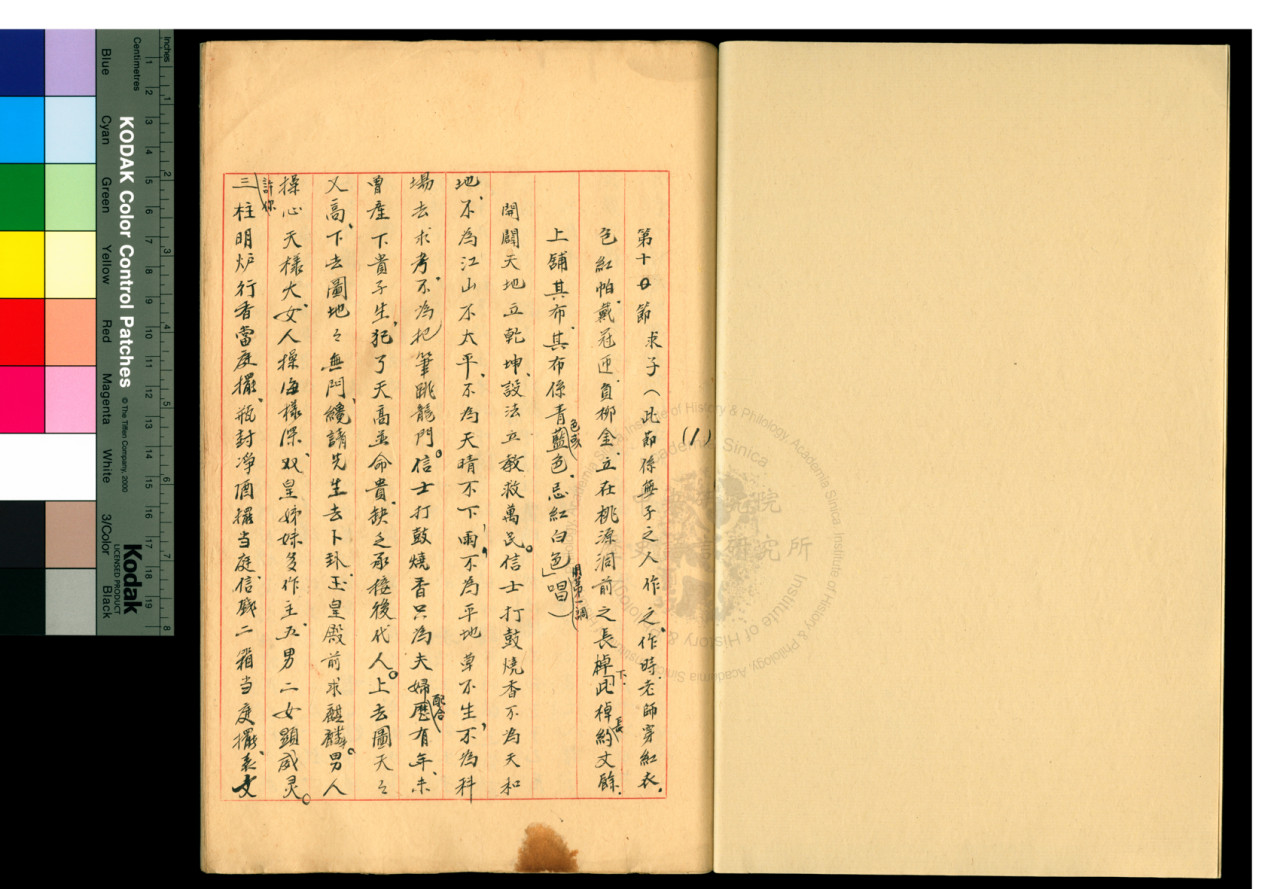 第十日節 求子（此節係無子之人作之作時.老師穿紅衣.
色紅帕.戴冠迎負柳金.立在桃源洞前之長棹下.此棹約長丈餘.
上舖其布.其布係青藍色或色.忌紅白色」用第一調唱）
開闢天地立乾坤、設法立教救萬民。信士打鼓燒香不為天和
地、不為江山不太平、不為天晴不下雨、不為平地草不生、不為科
場去求考、不為把筆跳龍門。信士打鼓燒香只為夫婦配合歷有年、未
曾產下貴子生、犯了天高並命貴、缺乏承接後代人。上去圖天々
又高、下去圖地々無門、纔請先生去卜卦、玉皇殿前求麒麟。男人
操心天樣大、女人操海樣深、双皇姊妹多作主、五男二女顯威灵。
許你三柱明炉行香當庭擺、瓶封凈酒擺当庭、信 二箱当庭擺、表文
(1)
Kodak
LICENSED PRODUCT
KODAK Color Control Patches
© The Tiffen Company, 2000
Blue
Cyan
Green
Yellow
Red
Magenta
White
3/Color
Black
Inches
1 2 3 4 5 6 7 8
Centimetres
1 2 3 4 5 6 7 8 9 10 11 12 13 14 15 16 17 18 19
中央研究院
歷史語言研究所
Institute of History & Philology, Academia Sinica